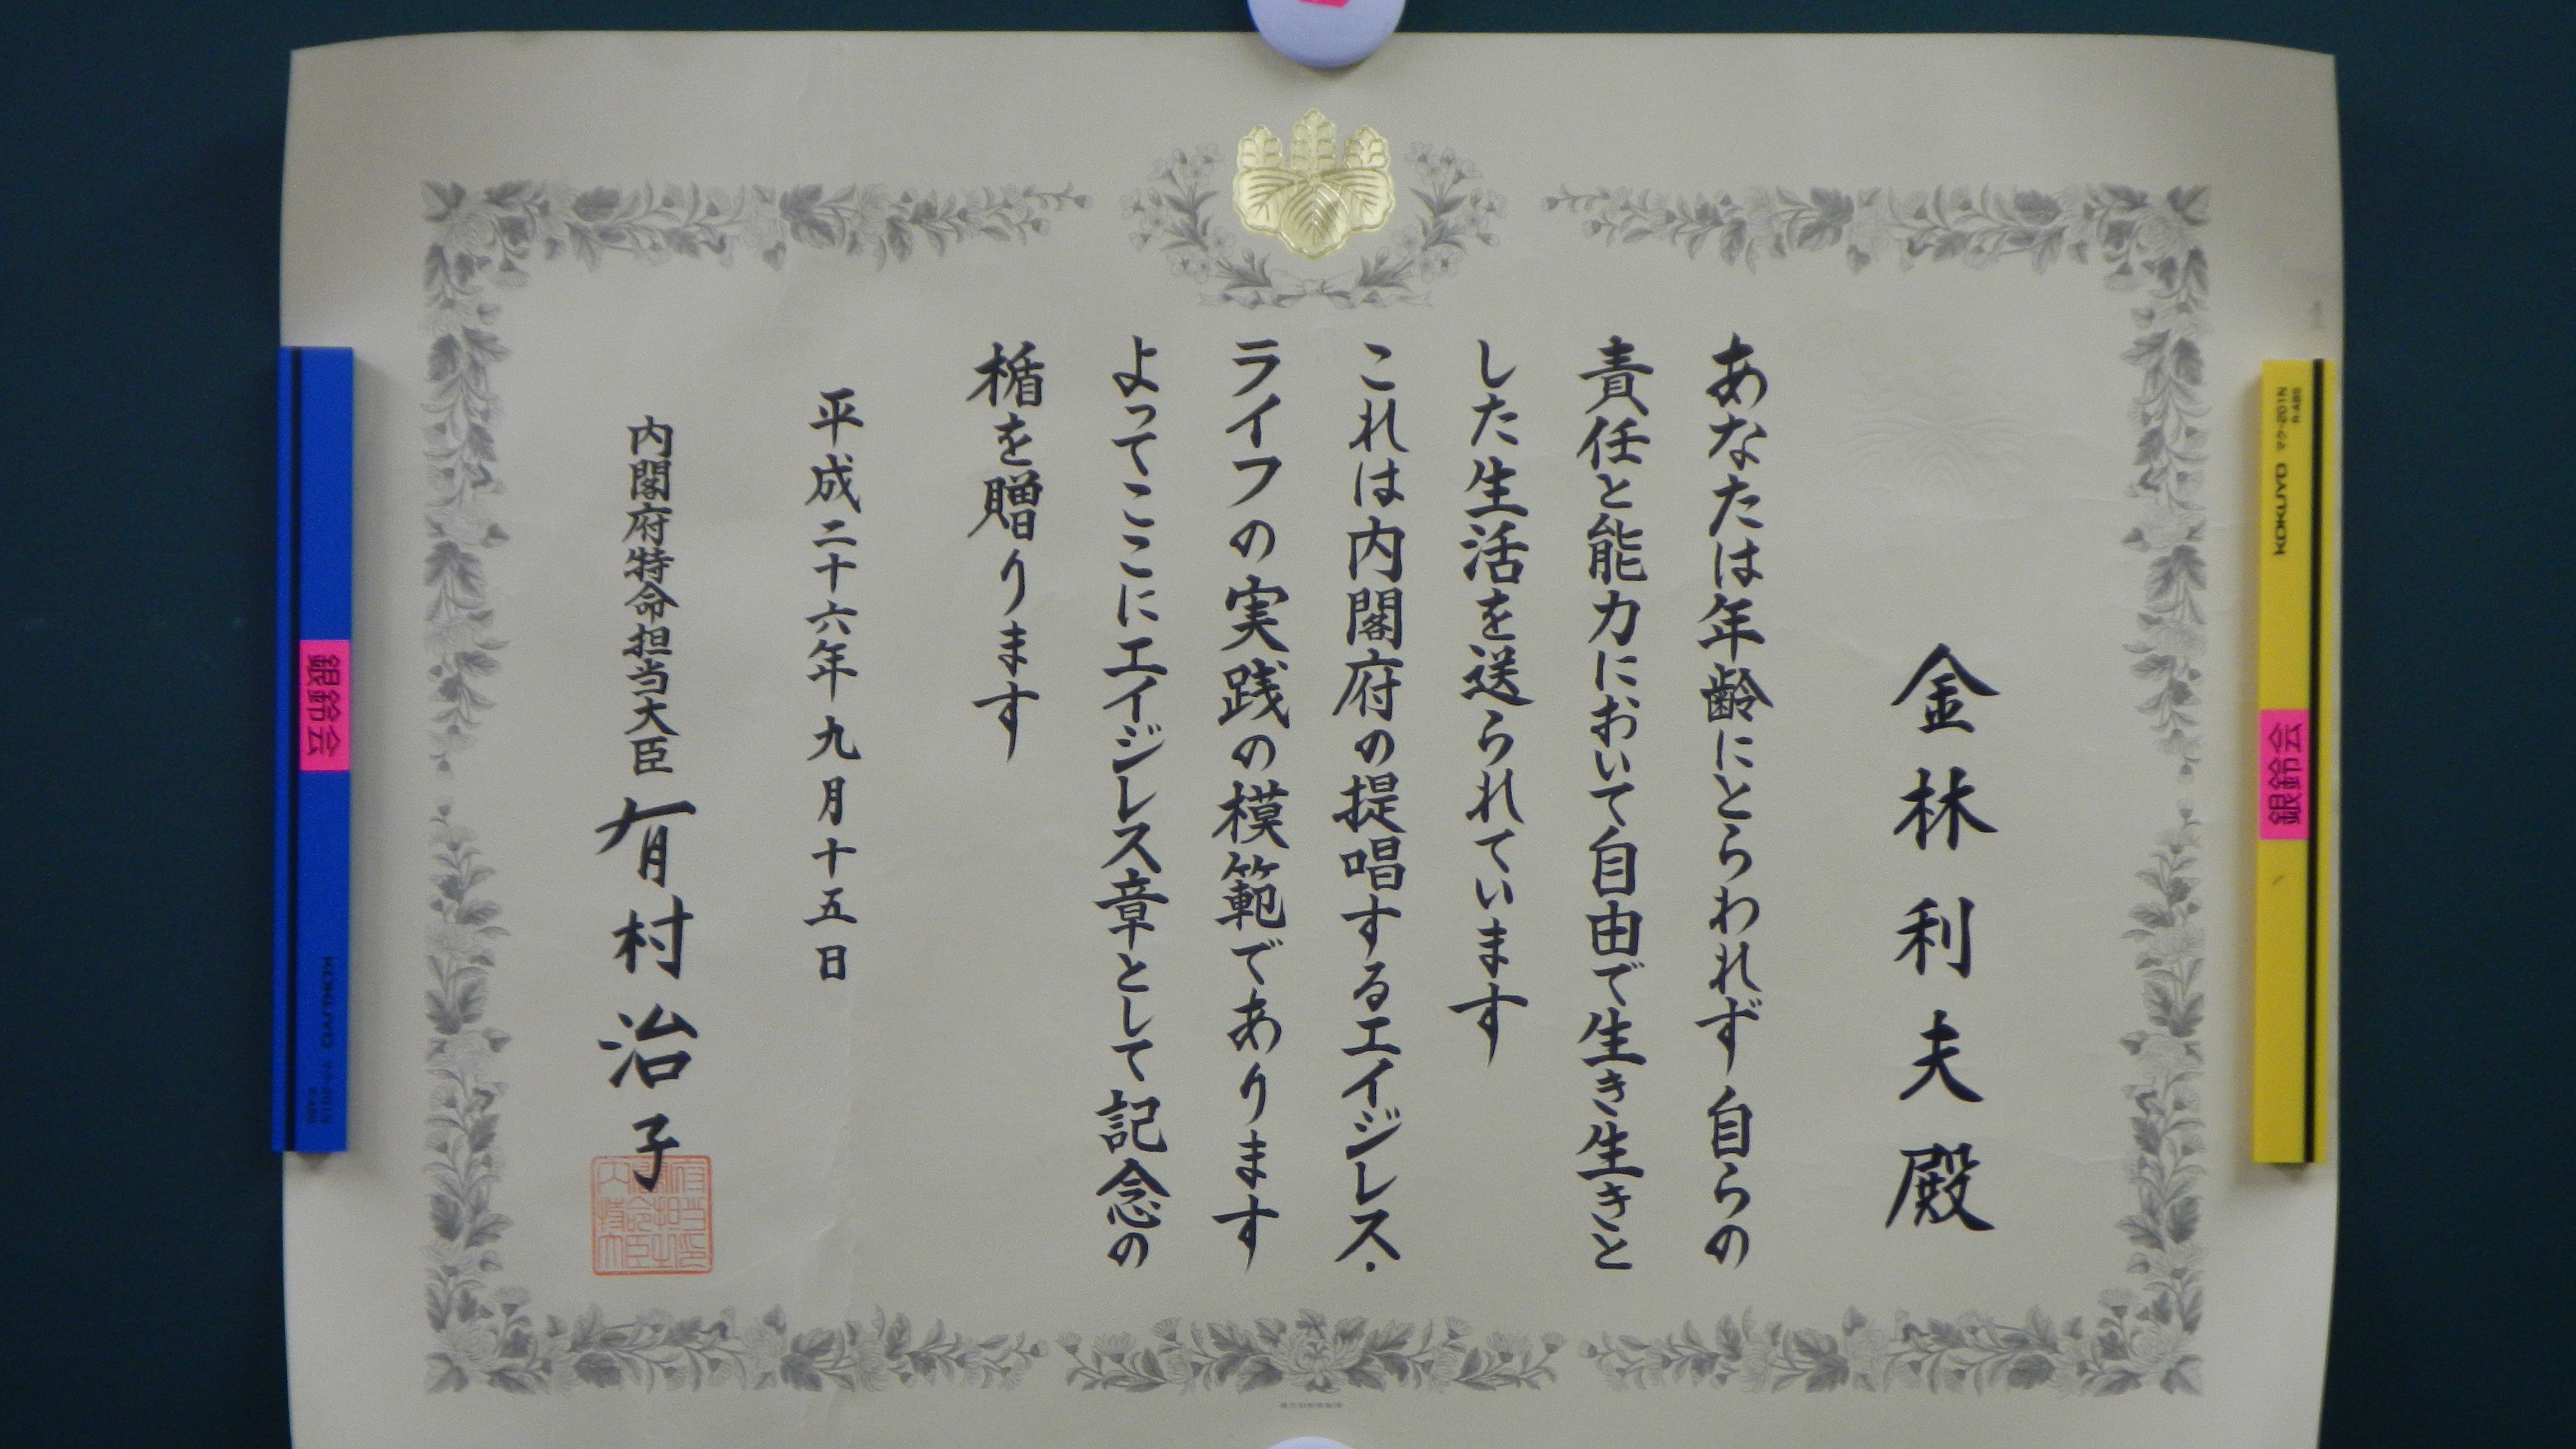 金林利夫殿
あなたは年齢にとらわれず自らの
責任と能力において自由で生き生きと
した生活を送られています
これは内閣府の提唱するエイジレス・
ライフの実践の模範であります
よってここにエイジレス章として記念の
楯を贈ります
平成二十六年九月十五日
内閣府特命担当大臣 有村治子
銀鈴会
KOKUYO マク-201N
R-ABS
銀鈴会
KOKUYO マク-201N
R-ABS